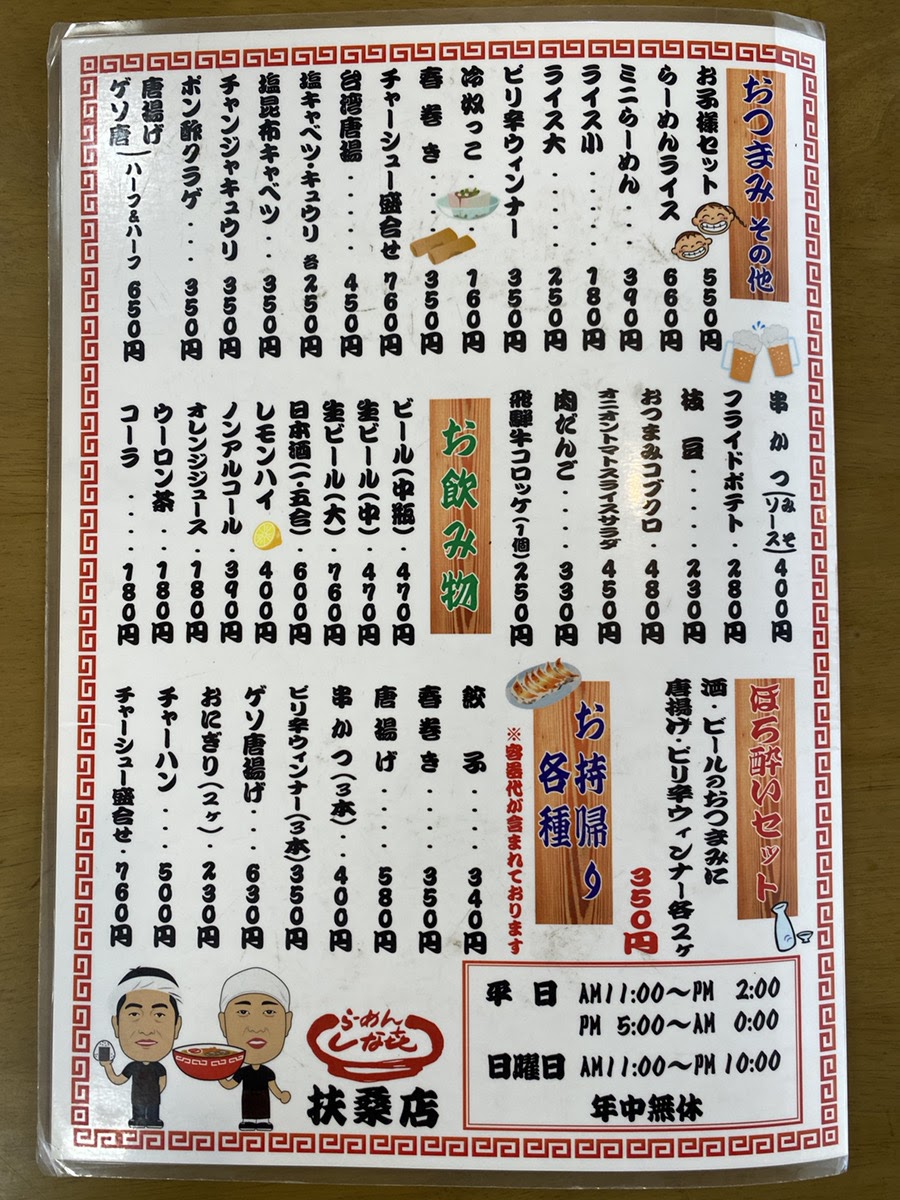 おつまみ その他
お子様セット 550円
らーめんライス 660円
ミニらーめん... 390円
ライス小.... 180円
ライス大.... 250円
ピリ辛ウィンナー 350円
冷奴っこ.. 160円
春巻き... 350円
チャーシュー盛合せ 760円
台湾唐揚.... 450円
塩キャベツ・キュウリ 各250円
塩昆布キャベツ. 350円
チャンジャキュウリ 350円
ポン酢クラゲ... 350円
唐揚げ
ゲソ唐
(ハーフ&ハーフ 650円
串かつ(みそ
ソース) 400円
フライドポテト. 280円
枝豆... 230円
おつまみコブクロ. 480円
オニオントマトスライスサラダ 450円
肉だんご.... 330円
飛騨牛コロッケ(1個) 250円
お飲み物
ビール(中瓶). 470円
生ビール(中). 470円
生ビール(大). 760円
日本酒(一・五合) 600円
レモンハイ 400円
ノンアルコール. 390円
オレンジジュース. 180円
ウーロン茶.. 180円
コーラ.... 180円
ほろ酔いセット
酒・ビールのおつまみに
唐揚げ・ピリ辛ウィンナー各2ヶ
350円
お持帰り
各種
※容器代が含まれております
餃子.... 340円
春巻き.... 350円
唐揚げ.... 580円
串かつ(3本).. 400円
ピリ辛ウィンナー(3本) 350円
ゲソ唐揚げ... 630円
おにぎり(2ヶ).. 230円
チャーハン... 500円
チャーシュー盛合せ. 760円
らーめん
しなき
扶桑店
平日 AM11:00～PM 2:00
PM 5:00～AM 0:00
日曜日 AM11:00～PM 10:00
年中無休